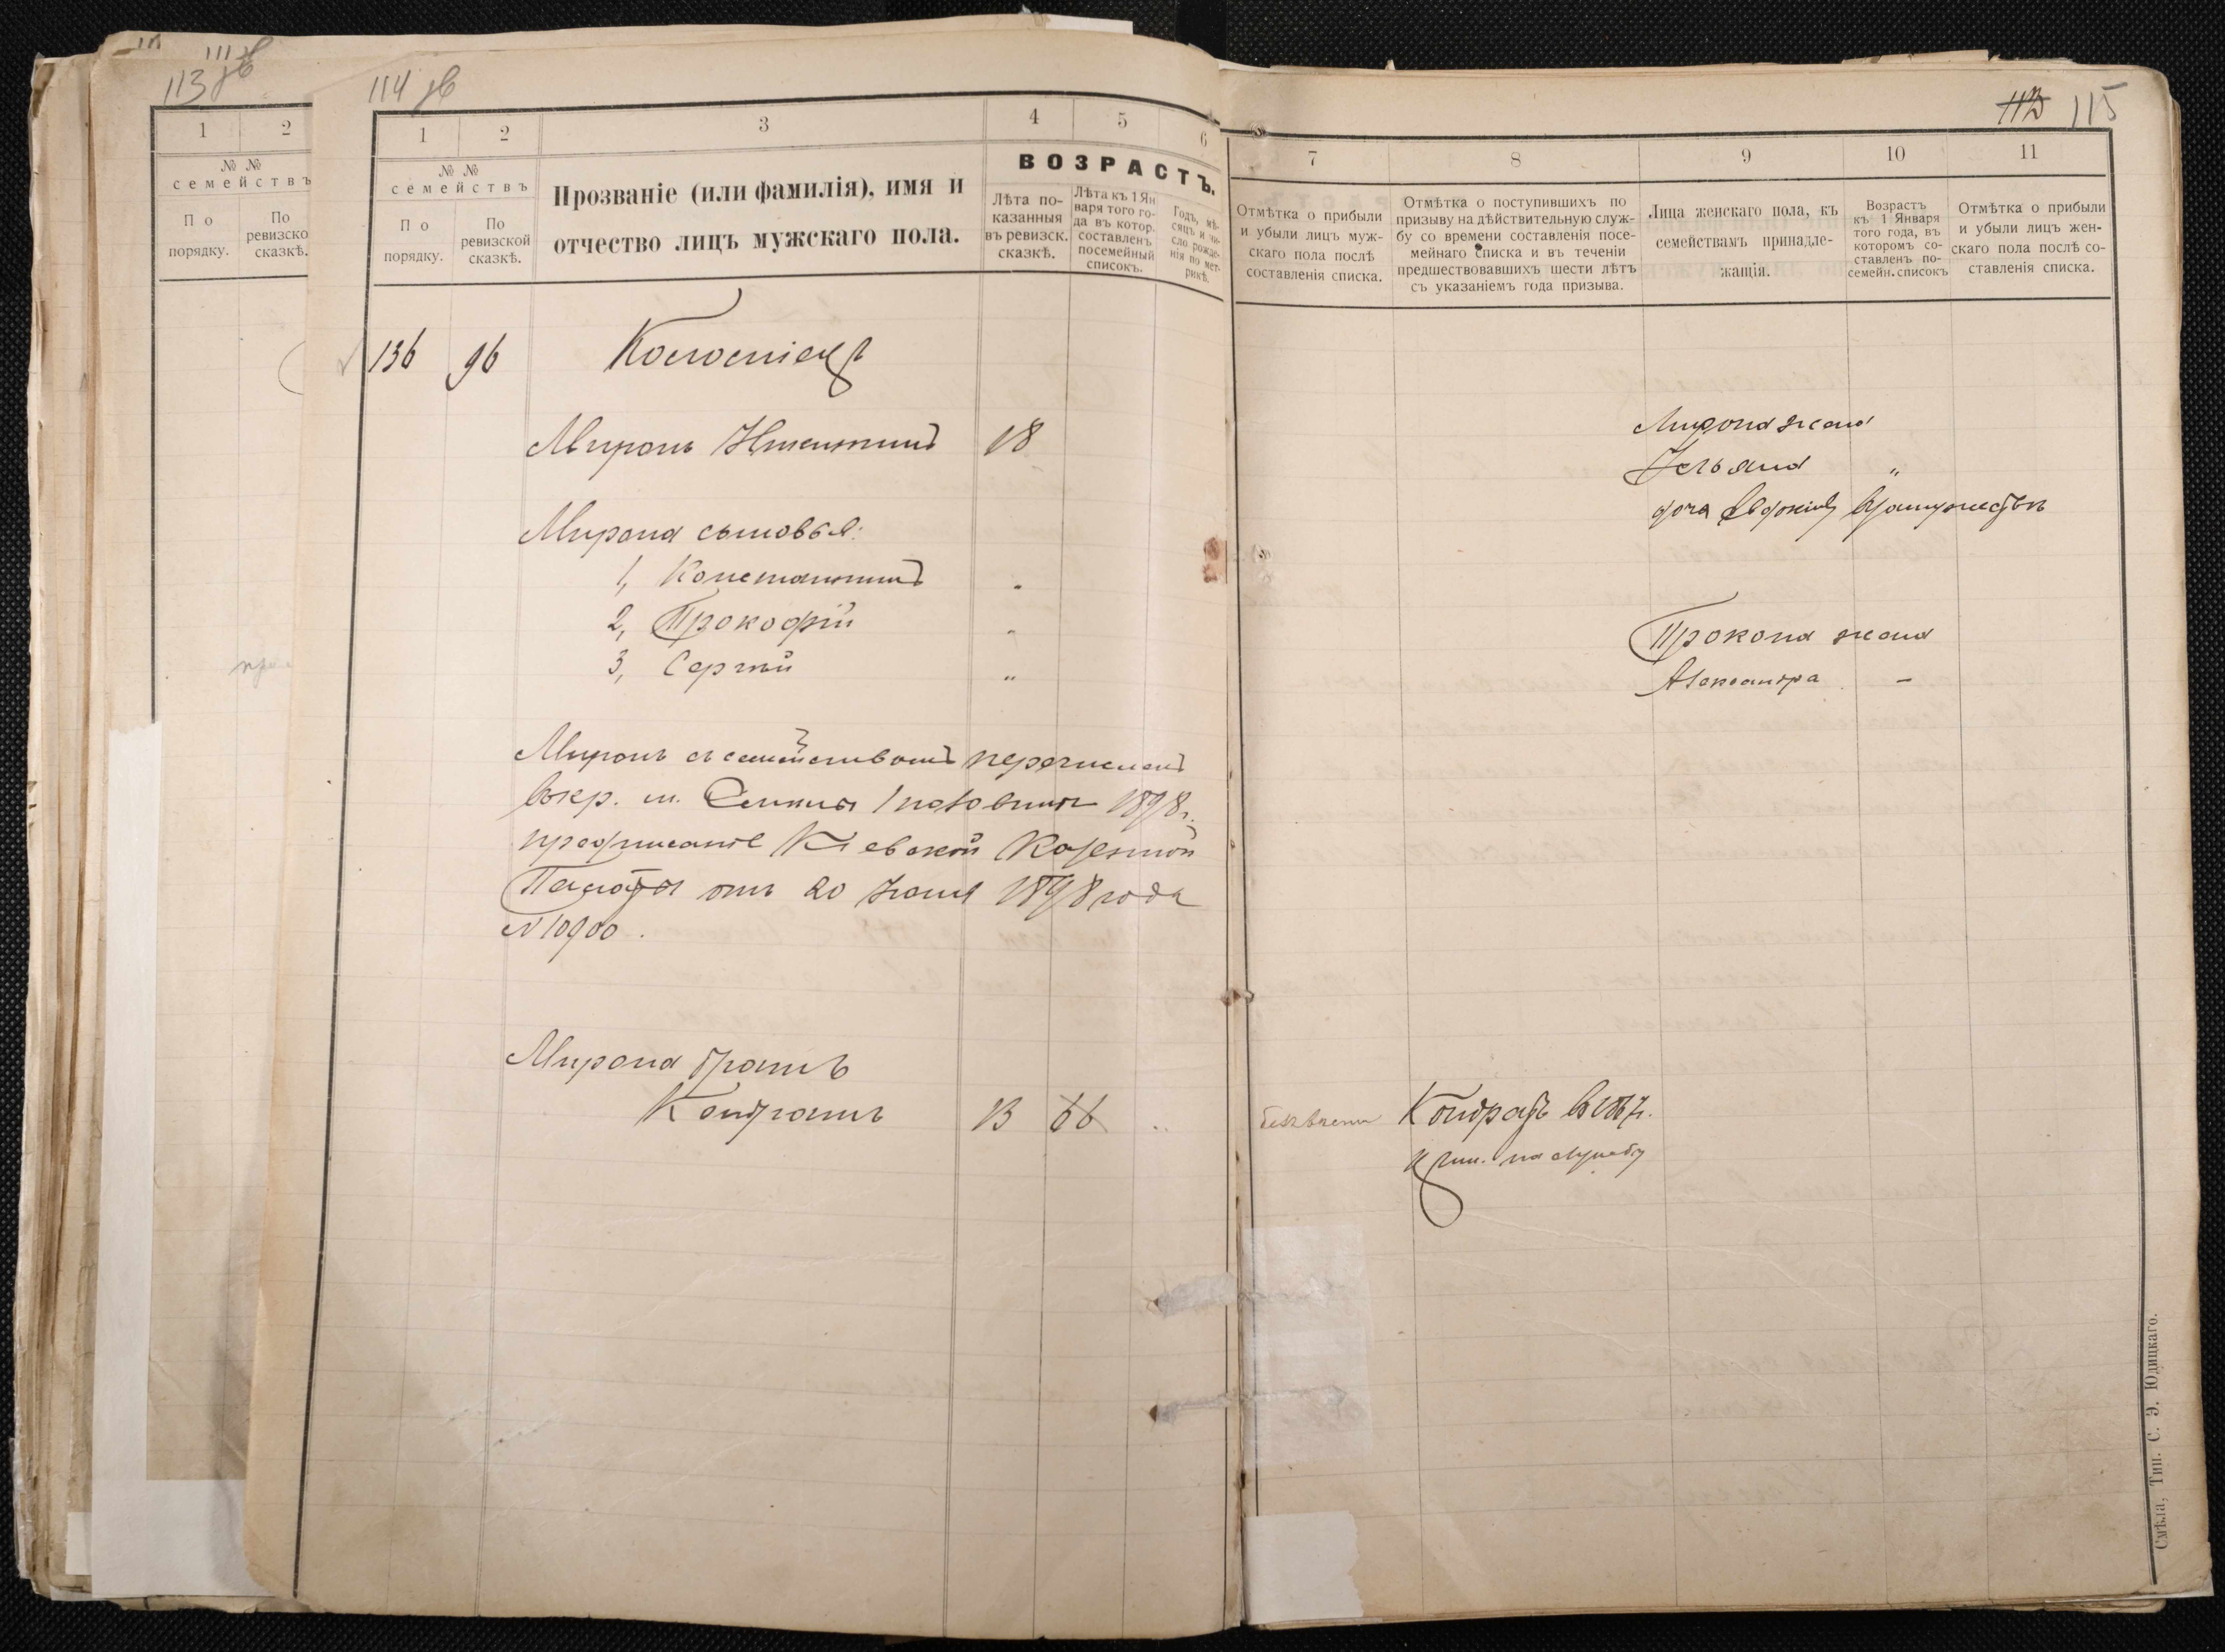 111
113 об
1
2
№ №
семействъ
По порядку.
По ревизско
сказкѣ.
114 об
1
2
3
4
5
6
№ №
семействъ
По порядку.
По ревизской сказкѣ.
Прозваніе (или фамилія), имя и
отчество лицъ мужскаго пола.
ВОЗРАСТЪ.
Лѣта по-
казанныя
въ ревизск.
сказкѣ.
Лѣта къ 1 Ян
варя того го-
да въ котор.
составленъ
посемейный
списокъ.
Годъ, мѣ-
сяцъ и чи-
сло рожде-
нія по мет-
рикѣ.
136 96
Миронъ 18
Мирона сыновья:
1, Константинъ "
2, Прокофій "
3, Сергѣй "
Миронъ съ семействомъ перечисленъ
1898 г.
Кіевской Казенной
Палаты отъ 20 1898 года
№ 10900.
Мирона братъ
Кондратъ 13 66 "
115
7
8
9
10
11
Отмѣтка о прибыли
и убыли лицъ муж-
скаго пола послѣ
составленія списка.
Отмѣтка о поступившихъ по
призыву на дѣйствительную служ-
бу со времени составленія посе-
мейнаго списка и въ теченіи
предшествовавшихъ шести лѣтъ
съ указаніемъ года призыва.
Лица женскаго пола, къ
семействамъ принадле-
жащія.
Возрастъ
къ 1 Января
того года, въ
которомъ со-
ставленъ по-
семейн. списокъ
Отмѣтка о прибыли
и убыли лицъ жен-
скаго пола послѣ со-
ставленія списка.
Мирона жена
Ульяна "
дочь Евдокія взамужествѣ
Прокопа жена
Александра -
Кондратъ
на службу
Смѣла, Тип. С. Э. Юдицкаго.